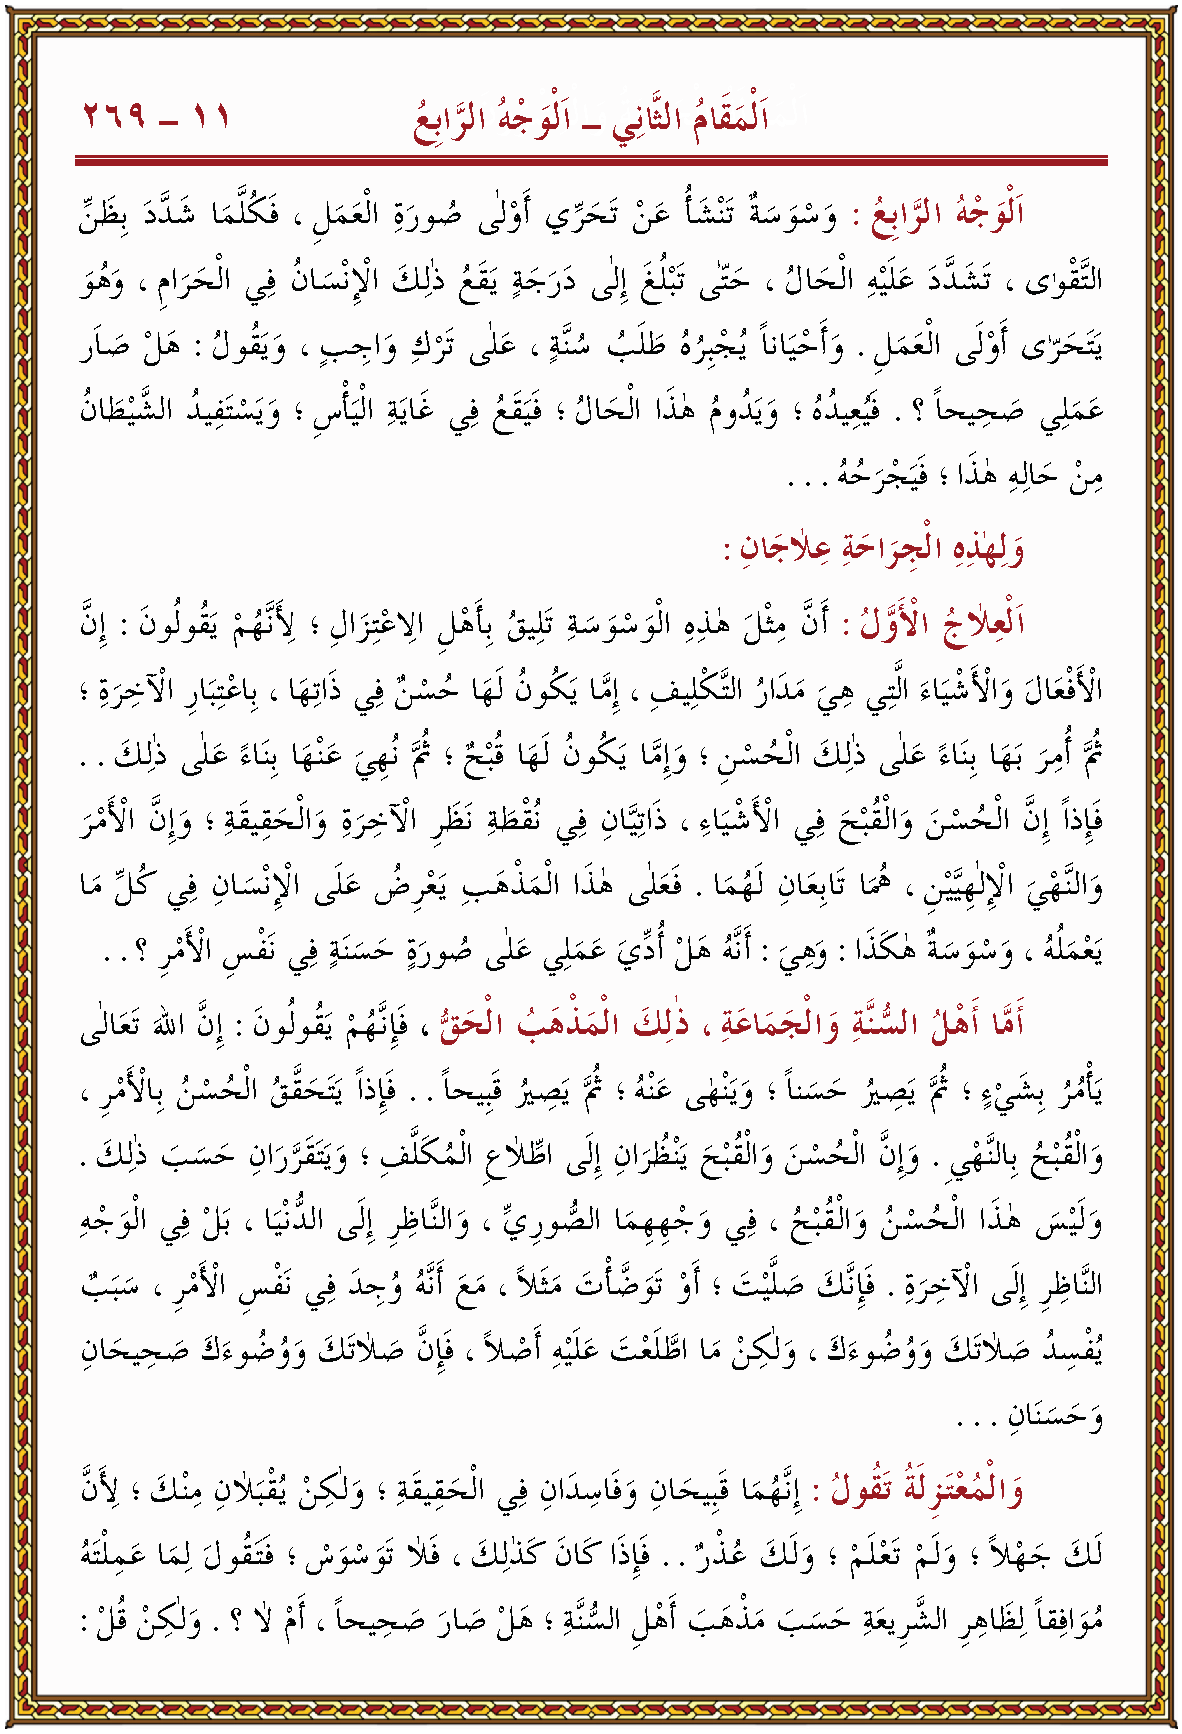 اَلْمَقَامُ الثَّانِي ــ اَلْوَجْهُ الرَّابِعُ ١١ ــ ٢٦٩
اَلْوَجْهُ الرَّابِعُ : وَسْوَسَةٌ تَنْشَأُ عَنْ تَحَرِّي أَوْلٰى صُورَةِ الْعَمَلِ ، فَكُلَّمَا شَدَّدَ بِظَنِّ
التَّقْوٰى ، تَشَدَّدَ عَلَيْهِ الْحَالُ ، حَتّٰى تَبْلُغَ إِلٰى دَرَجَةٍ يَقَعُ ذٰلِكَ الْإِنْسَانُ فِي الْحَرَامِ ، وَهُوَ
يَتَحَرّٰى أَوْلَى الْعَمَلِ . وَأَحْيَاناً يُجْبِرُهُ طَلَبُ سُنَّةٍ ، عَلٰى تَرْكِ وَاجِبٍ ، وَيَقُولُ : هَلْ صَاَر
عَمَلِي صَحِيحاً ؟ . فَيُعِيدُهُ ؛ وَيَدُومُ هٰذَا الْحَالُ ؛ فَيَقَعُ فِي غَايَةِ الْيَأْسِ ؛ وَيَسْتَفِيدُ الشَّيْطَانُ
مِنْ حَالِهِ هٰذَا ؛ فَيَجْرَحُهُ . . .
وَلِهٰذِهِ الْجِرَاحَةِ عِلَاجَانِ :
اَلْعِلَاجُ الْأَوَّلُ : أَنَّ مِثْلَ هٰذِهِ الْوَسْوَسَةِ تَلِيقُ بِأَهْلِ الِاعْتِزَالِ ؛ لِأَنَّهُمْ يَقُولُونَ : إِنَّ
الْأَفْعَالَ وَالْأَشْيَاءَ الَّتِي هِيَ مَدَارُ التَّكْلِيفِ ، إِمَّا يَكُونُ لَهَا حُسْنٌ فِي ذَاتِهَا ، بِاعْتِبَارِ الْآخِرَةِ ؛
ثُمَّ أُمِرَ بَهَا بِنَاءً عَلٰى ذٰلِكَ الْحُسْنِ ؛ وَإِمَّا يَكُونُ لَهَا قُبْحٌ ؛ ثُمَّ نُهِيَ عَنْهَا بِنَاءً عَلٰى ذٰلِكَ . .
فَإِذاً إِنَّ الْحُسْنَ وَالْقُبْحَ فِي الْأَشْيَاءِ ، ذَاتِيَّانِ فِي نُقْطَةِ نَظَرِ الْآخِرَةِ وَالْحَقِيقَةِ ؛ وَإِنَّ الْأَمْرَ
وَالنَّهْيَ الْإِلٰهِيَّيْنِ ، هُمَا تَابِعَانِ لَهُمَا . فَعَلٰى هٰذَا الْمَذْهَبِ يَعْرِضُ عَلَى الْإِنْسَانِ فِي كُلِّ مَا
يَعْمَلُهُ ، وَسْوَسَةٌ هٰكَذَا : وَهِيَ : أَنَّهُ هَلْ أُدِّيَ عَمَلِي عَلٰى صُورَةٍ حَسَنَةٍ فِي نَفْسِ الْأَمْرِ ؟ . .
أَمَّا أَهْلُ السُّنَّةِ وَالْجَمَاعَةِ ، ذٰلِكَ الْمَذْهَبُ الْحَقُّ ، فَإِنَّهُمْ يَقُولُونَ : إِنَّ اللهَ تَعَالٰى
يَأْمُرُ بِشَيْءٍ ؛ ثُمَّ يَصِيرُ حَسَناً ؛ وَيَنْهٰى عَنْهُ ؛ ثُمَّ يَصِيرُ قَبِيحاً . . فَإِذاً يَتَحَقَّقُ الْحُسْنُ بِالْأَمْرِ ،
وَالْقُبْحُ بِالنَّهْيِ . وَإِنَّ الْحُسْنَ وَالْقُبْحَ يَنْظُرَانِ إِلَى اطِّلَاعِ الْمُكَلَّفِ ؛ وَيَتَقَرَّرَانِ حَسَبَ ذٰلِكَ .
وَلَيْسَ هٰذَا الْحُسْنُ وَالْقُبْحُ ، فِي وَجْهِهِمَا الصُّورِيِّ ، وَالنَّاظِرِ إِلَى الدُّنْيَا ، بَلْ فِي الْوَجْهِ
النَّاظِرِ إِلَى الْآخِرَةِ . فَإِنَّكَ صَلَّيْتَ ؛ أَوْ تَوَضَّأْتَ مَثَلاً ، مَعَ أَنَّهُ وُجِدَ فِي نَفْسِ الْأَمْرِ ، سَبَبٌ
يُفْسِدُ صَلَاتَكَ وَوُضُوءَكَ ، وَلٰكِنْ مَا اطَّلَعْتَ عَلَيْهِ أَصْلاً ، فَإِنَّ صَلَاتَكَ وَوُضُوءَكَ صَحِيحَانِ
وَحَسَنَانِ . . .
وَالْمُعْتَزِلَةُ تَقُولُ : إِنَّهُمَا قَبِيحَانِ وَفَاسِدَانِ فِي الْحَقِيقَةِ ؛ وَلٰكِنْ يُقْبَلَانِ مِنْكَ ؛ لِأَنَّ
لَكَ جَهْلاً ؛ وَلَمْ تَعْلَمْ ؛ وَلَكَ عُذْرٌ . . فَإِذَا كَانَ كَذٰلِكَ ، فَلَا تَوَسْوَسْ ؛ فَتَقُولَ لِمَا عَمِلْتَهُ
مُوَافِقاً لِظَاهِرِ الشَّرِيعَةِ حَسَبَ مَذْهَبَ أَهْلِ السُّنَّةِ ؛ هَلْ صَارَ صَحِيحاً ، أَمْ لَا ؟ . وَلٰكِنْ قُلْ :